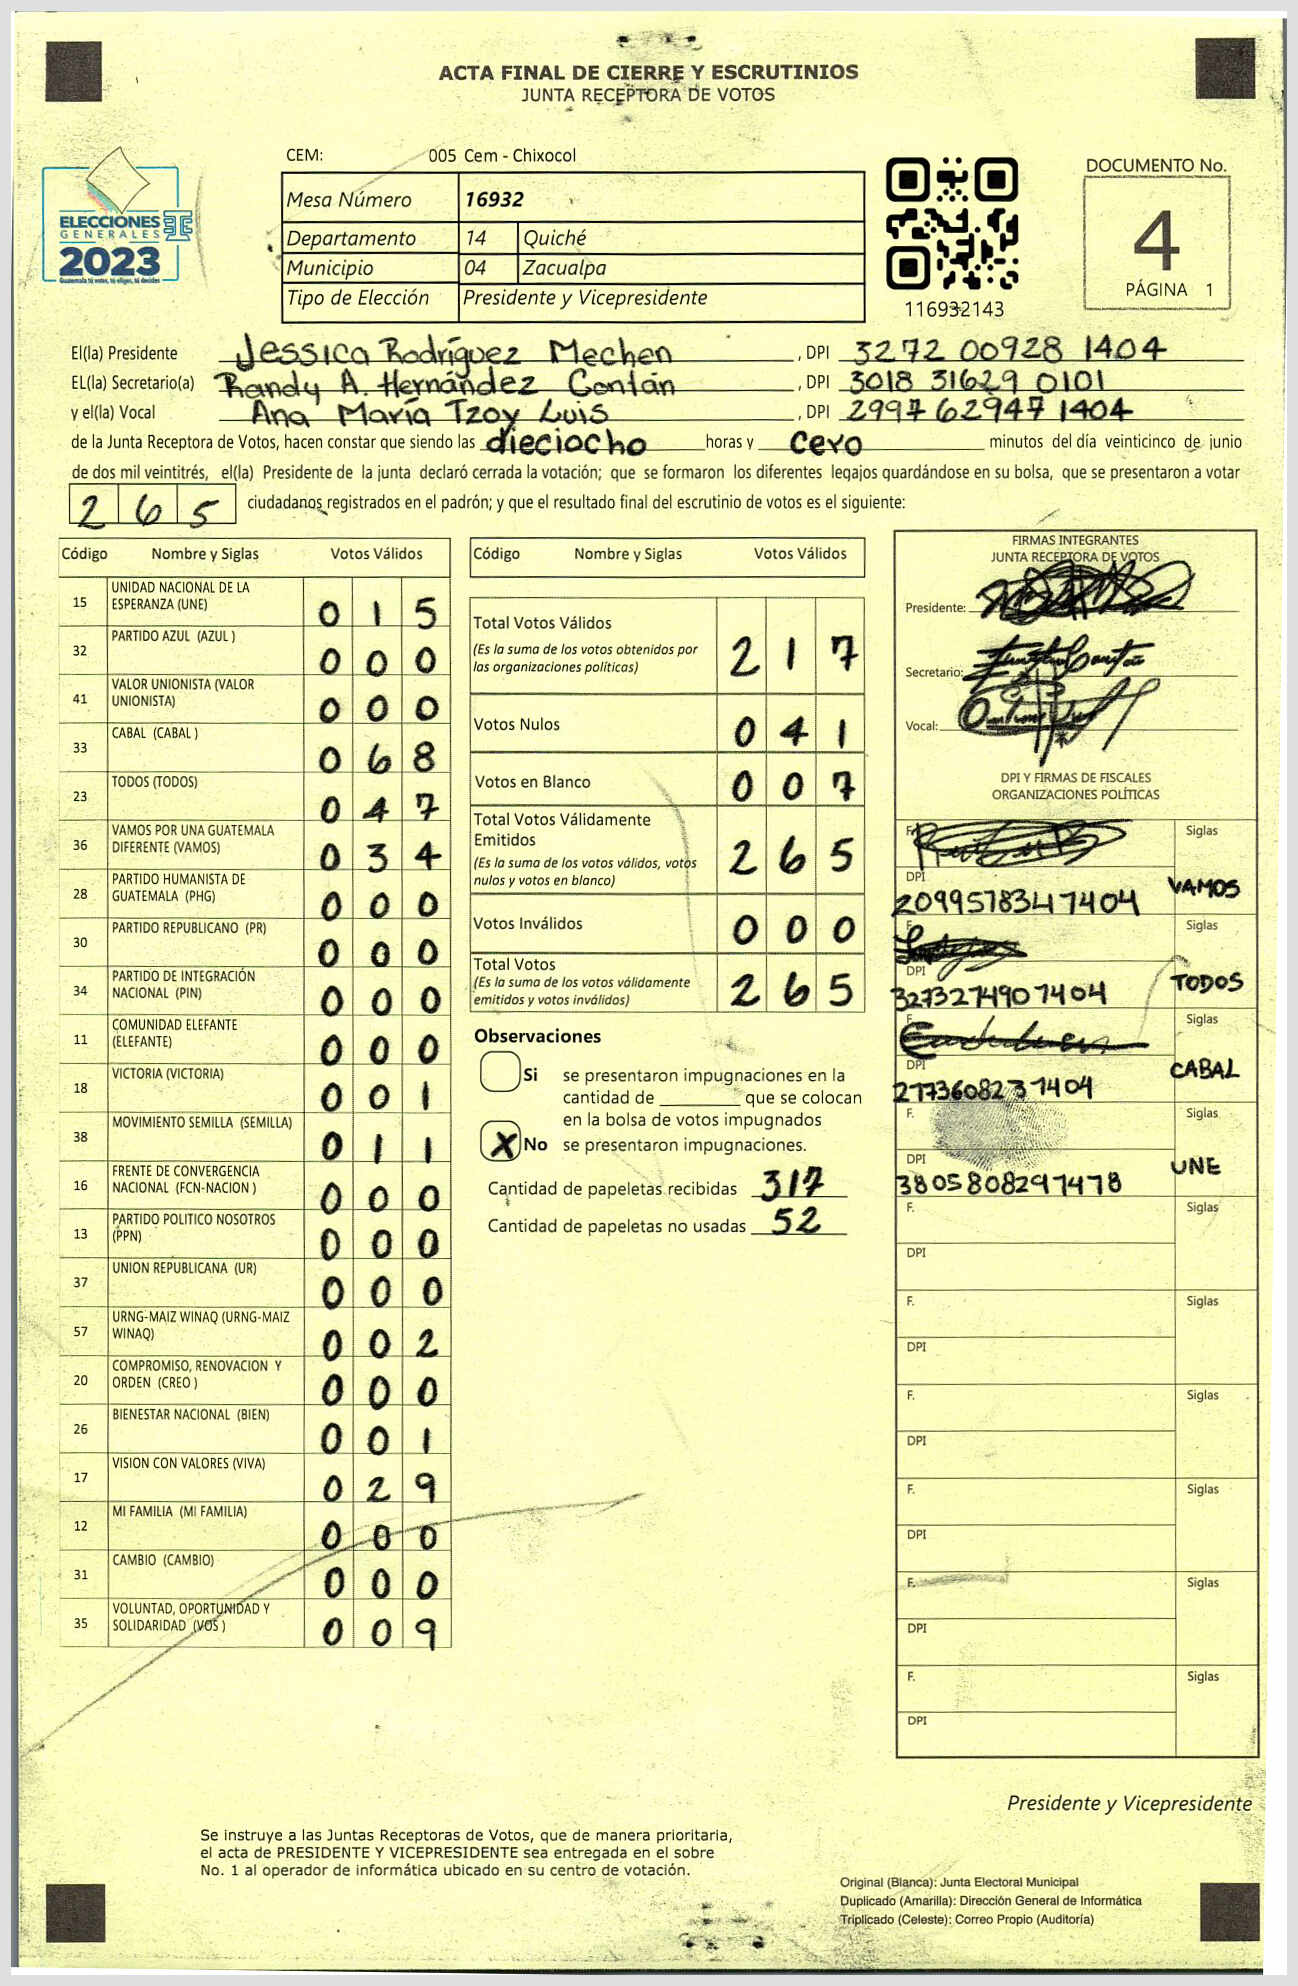 ACTA FINAL DE CIERRE Y ESCRUTINIOS
JUNTA RECEPTORA DE VOTOS
ELECCIONES
GENERALES
2023
Guatemala tú votas, tú eliges, tú decides
CEM: 005 Cem - Chixocol
Mesa Número 16932
Departamento 14 Quiché
Municipio 04 Zacualpa
Tipo de Elección Presidente y Vicepresidente
116932143
DOCUMENTO No.
4
PÁGINA 1
El(la) Presidente Jessica Rodríguez Mechen , DPI 3272 00928 1404
EL(la) Secretario(a) Randy A. Hernández Contán , DPI 3018 31629 0101
y el(la) Vocal Ana María Tzoy Luis , DPI 2997 62947 1404
de la Junta Receptora de Votos, hacen constar que siendo las dieciocho horas y cero minutos del día veinticinco de junio
de dos mil veintitrés, el(la) Presidente de la junta declaró cerrada la votación; que se formaron los diferentes legajos guardándose en su bolsa, que se presentaron a votar
2 6 5 ciudadanos registrados en el padrón; y que el resultado final del escrutinio de votos es el siguiente:
Código Nombre y Siglas Votos Válidos
15 UNIDAD NACIONAL DE LA ESPERANZA (UNE) 0 1 5
32 PARTIDO AZUL (AZUL ) 0 0 0
41 VALOR UNIONISTA (VALOR UNIONISTA) 0 0 0
33 CABAL (CABAL ) 0 6 8
23 TODOS (TODOS) 0 4 7
36 VAMOS POR UNA GUATEMALA DIFERENTE (VAMOS) 0 3 4
28 PARTIDO HUMANISTA DE GUATEMALA (PHG) 0 0 0
30 PARTIDO REPUBLICANO (PR) 0 0 0
34 PARTIDO DE INTEGRACIÓN NACIONAL (PIN) 0 0 0
11 COMUNIDAD ELEFANTE (ELEFANTE) 0 0 0
18 VICTORIA (VICTORIA) 0 0 1
38 MOVIMIENTO SEMILLA (SEMILLA) 0 1 1
16 FRENTE DE CONVERGENCIA NACIONAL (FCN-NACION ) 0 0 0
13 PARTIDO POLITICO NOSOTROS (PPN) 0 0 0
37 UNION REPUBLICANA (UR) 0 0 0
57 URNG-MAIZ WINAQ (URNG-MAIZ WINAQ) 0 0 2
20 COMPROMISO, RENOVACION Y ORDEN (CREO ) 0 0 0
26 BIENESTAR NACIONAL (BIEN) 0 0 1
17 VISION CON VALORES (VIVA) 0 2 9
12 MI FAMILIA (MI FAMILIA) 0 0 0
31 CAMBIO (CAMBIO) 0 0 0
35 VOLUNTAD, OPORTUNIDAD Y SOLIDARIDAD (VOS ) 0 0 9
Código Nombre y Siglas Votos Válidos
Total Votos Válidos 2 1 7
(Es la suma de los votos obtenidos por
las organizaciones políticas)
Votos Nulos 0 4 1
Votos en Blanco 0 0 7
Total Votos Válidamente
Emitidos 2 6 5
(Es la suma de los votos válidos, votos
nulos y votos en blanco)
Votos Inválidos 0 0 0
Total Votos 2 6 5
(Es la suma de los votos válidamente
emitidos y votos inválidos)
Observaciones
Si se presentaron impugnaciones en la
cantidad de ________ que se colocan
en la bolsa de votos impugnados
X No se presentaron impugnaciones.
Cantidad de papeletas recibidas 317
Cantidad de papeletas no usadas 52
FIRMAS INTEGRANTES
JUNTA RECEPTORA DE VOTOS
Presidente:
Secretario:
Vocal:
DPI Y FIRMAS DE FISCALES
ORGANIZACIONES POLÍTICAS
F. Siglas
DPI VAMOS
2099578347404
F. Siglas
DPI TODOS
3273274907404
F. Siglas
DPI CABAL
2773608237404
F. Siglas
DPI UNE
3805808297478
F. Siglas
DPI
F. Siglas
DPI
F. Siglas
DPI
F. Siglas
DPI
F. Siglas
DPI
F. Siglas
DPI
Presidente y Vicepresidente
Se instruye a las Juntas Receptoras de Votos, que de manera prioritaria,
el acta de PRESIDENTE Y VICEPRESIDENTE sea entregada en el sobre
No. 1 al operador de informática ubicado en su centro de votación.
Original (Blanca): Junta Electoral Municipal
Duplicado (Amarilla): Dirección General de Informática
Triplicado (Celeste): Correo Propio (Auditoría)